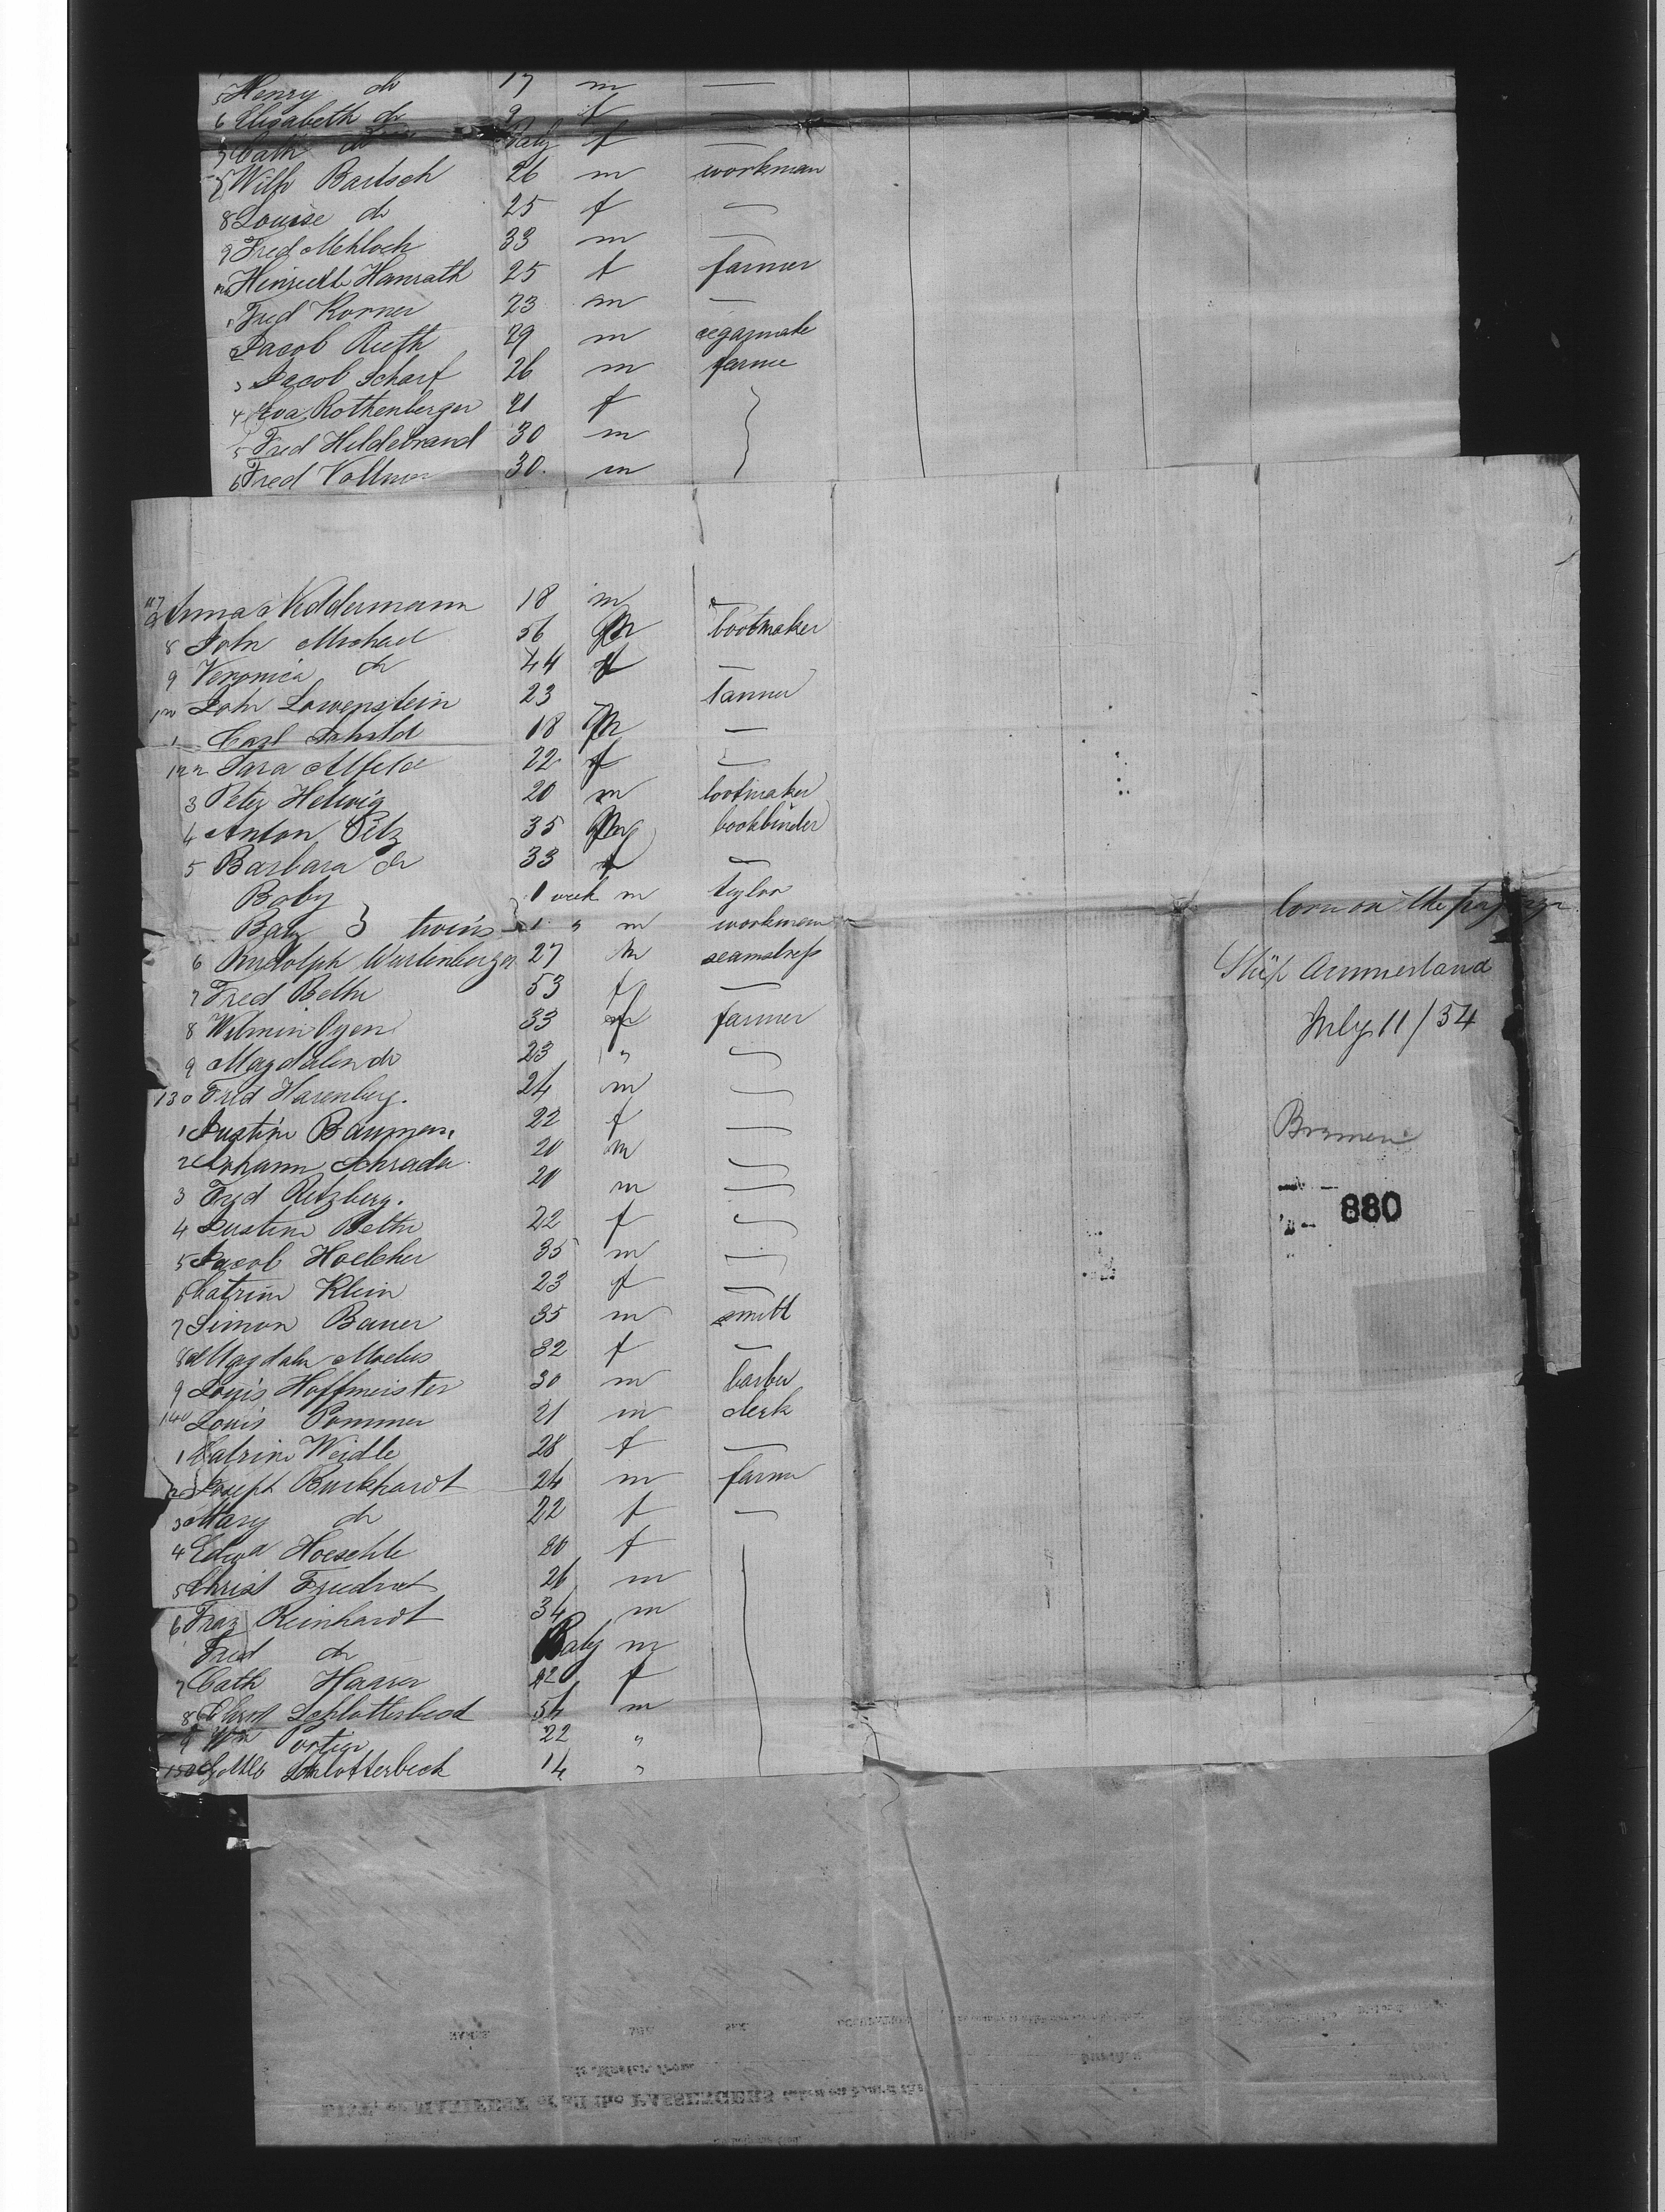 5 Henry do 17 m —
6 Elisabeth do 9 f —
7 Cath do Baby f —
Wilh Bartsch 26 m workman
8 Louise do 25 f —
9 Fred Mehloch 33 m —
Heinrich Hanrath 25 f farmer
1 Fred Korner 23 m —
2 Jacob Rueth 29 m cegarmake
3 Jacob Scharf 26 m farme
4 Eva Rothenberger 21 f
5 Fred Hildebrand 30 m
6 Fred Vollmer 30. m
117 Anna Neddermann 18 m —
8 John Michael 56 m bootmaker
9 Veronica do 44 f —
120 Joh Lowenstein 23 tanner
1 Carl Schild 18 m —
122 Sara Alfeld 22 f —
3 Peter Helwig 20 m bootmaker
4 Anton Pelz 35 m bookbinder
5 Barbara do 33 f —
Baby 1 week m teylor
Baby } twins 1 " m workman born on the
6 Rudolph Wurtenberger 27 m seamstress
7 Fred Bethe 53 f —
Ship Ammerland
8 Wilmin 33 f farmer
July 11/54
9 Magdalen do 23 "
130 Fred Harenberg. 24 m
1 Justine Baumen 22 f
Bremen
2 Johann Schrader 20 m
3 Fred Retzberg. 20 m
880
4 Justine Bethe 22 f
5 Jacob Hoelcher 35 m
6 Catrine Klein 23 f —
7 Simon Bauer 35 m smith
8 Magdale Moelus 32 f —
9 Louis Hoffmeister 30 m barber
140 Louis Pommer 21 m clerk
1 Catrine Weidle 28 f —
2 Joseph Burkhardt 24 m farmer
3 Mary do 22 f —
4 Hoeschle 20 f
5 Christ 26 m
6 Franz Reinhardt 34 m
Fred do Baby m
7 Cath Haarer 22 f
8 Schlotterbeck 54 m
9 Wm 22 "
150 Gottlb Schlotterbeck 14 "
NAMES. AGE. SEX. OCCUPATION.
LIST, or MANIFEST of all the PASSENGERS taken on board the